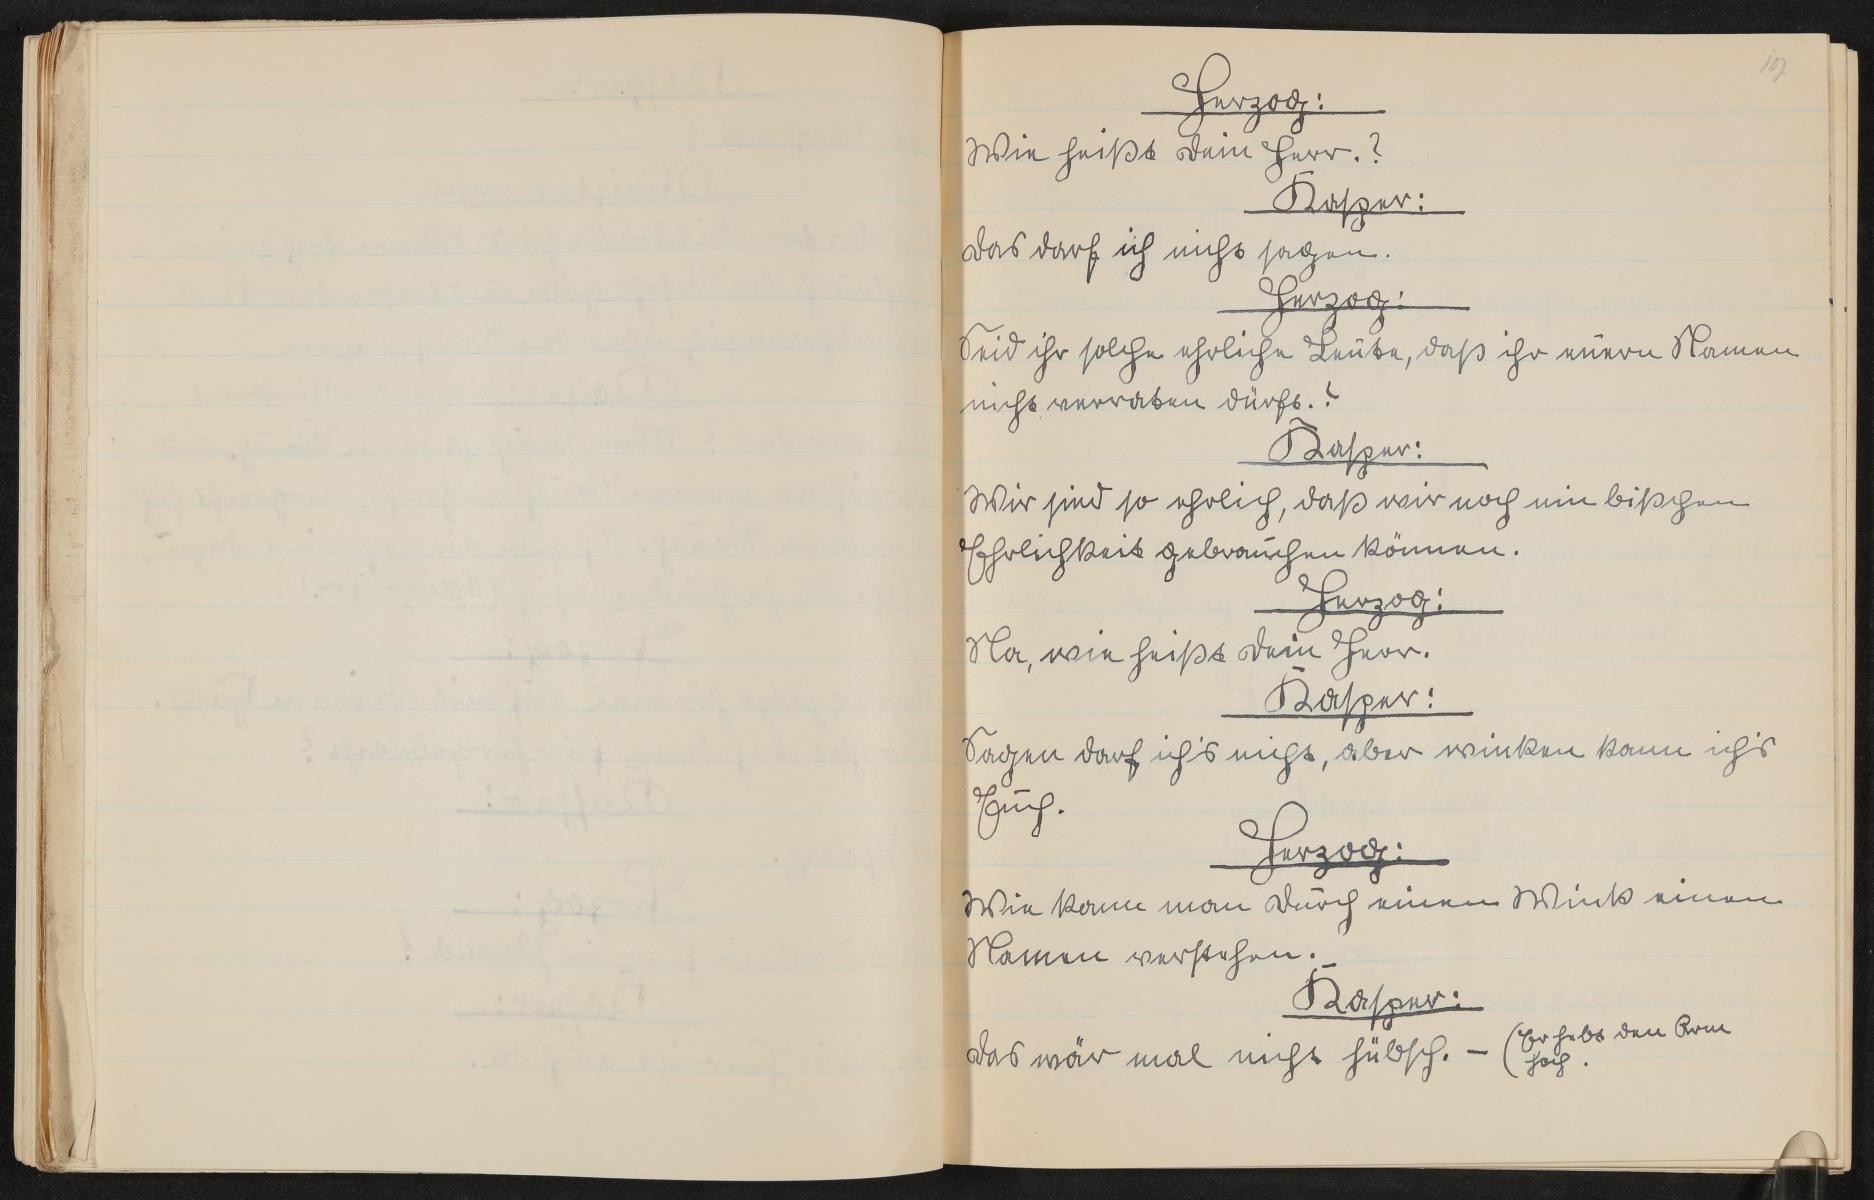 107
Herzog:
Wie heißt dein Herr.?
Kasper:
Das darf ich nicht sagen.
Herzog:
Seid ihr solche ehrliche Leute, daß ihr euern Namen
nicht verraten dürft.?
Kasper:
Wir sind so ehrlich, daß wir noch ein bißchen
Ehrlichkeit gebrauchen können.
Herzog:
Na, wie heißt dein Herr.
Kasper:
Sagen darf ich's nicht, aber winken kann ich's
Euch.
Herzog:
Wie kann man durch einen Wink einen
Namen verstehen.
Kasper:
Das wär mal nicht hübsch. – (Er hebt den Arm
hoch.